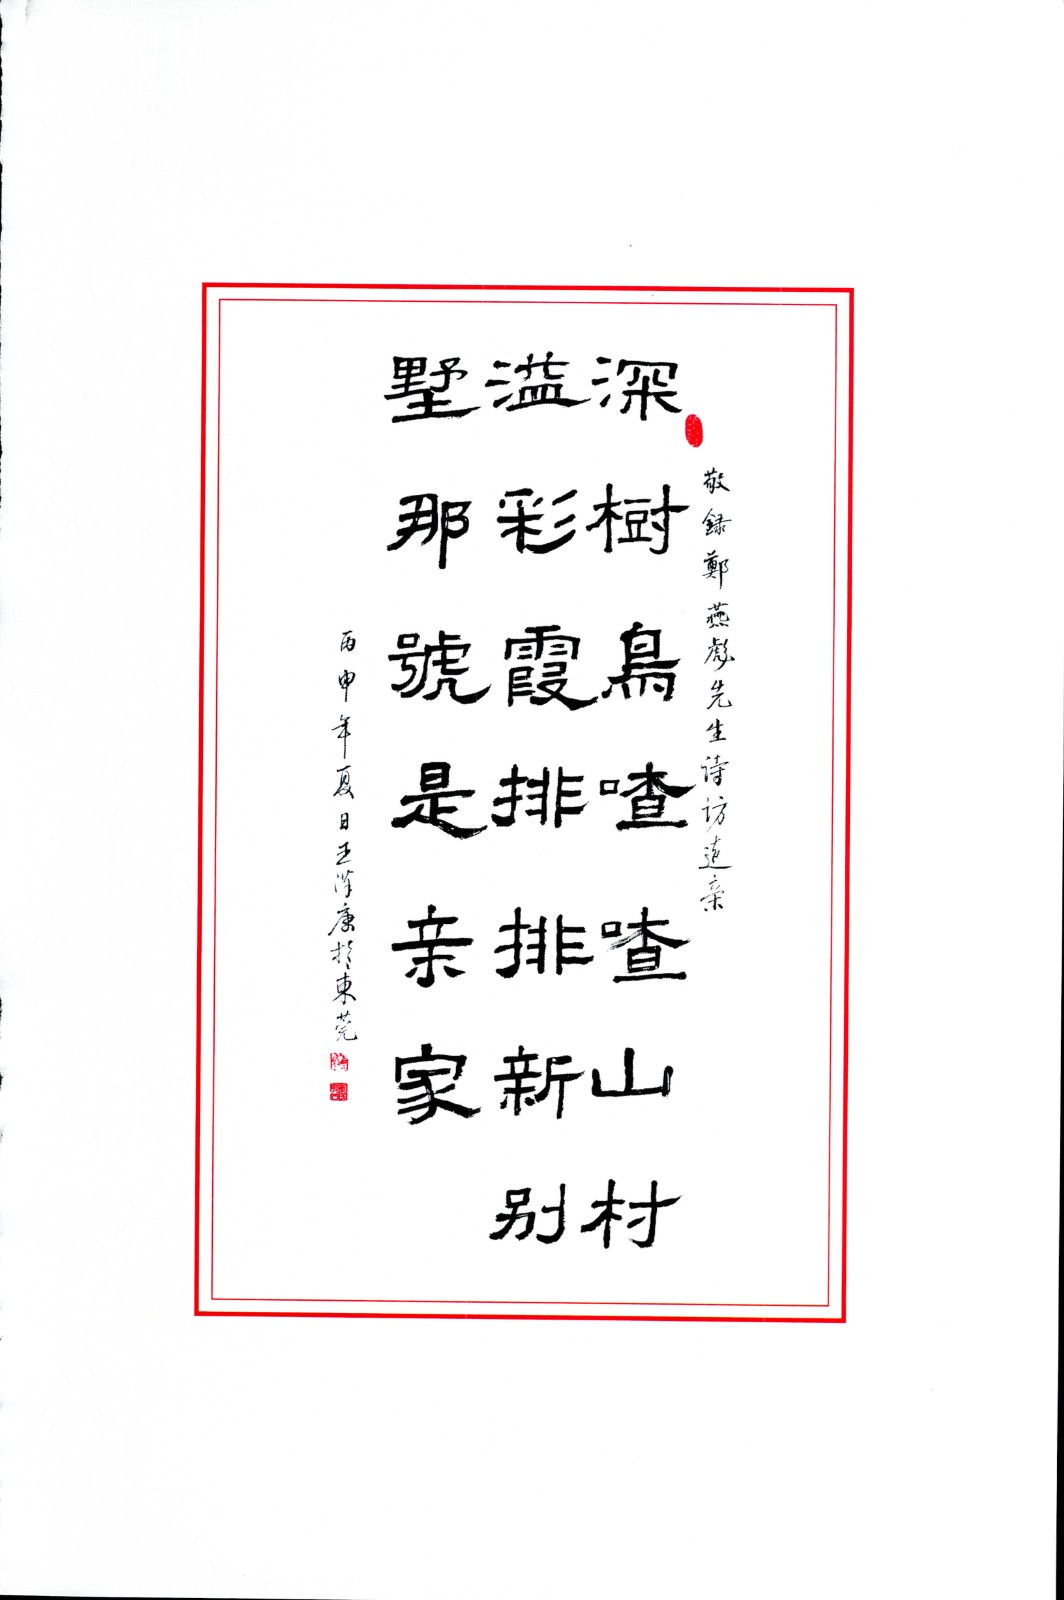 敬録鄭燕彪先生诗访遠亲
深樹鳥喳喳山村
溢彩霞排排新别
墅那號是亲家
丙申年夏日王泽康於東莞